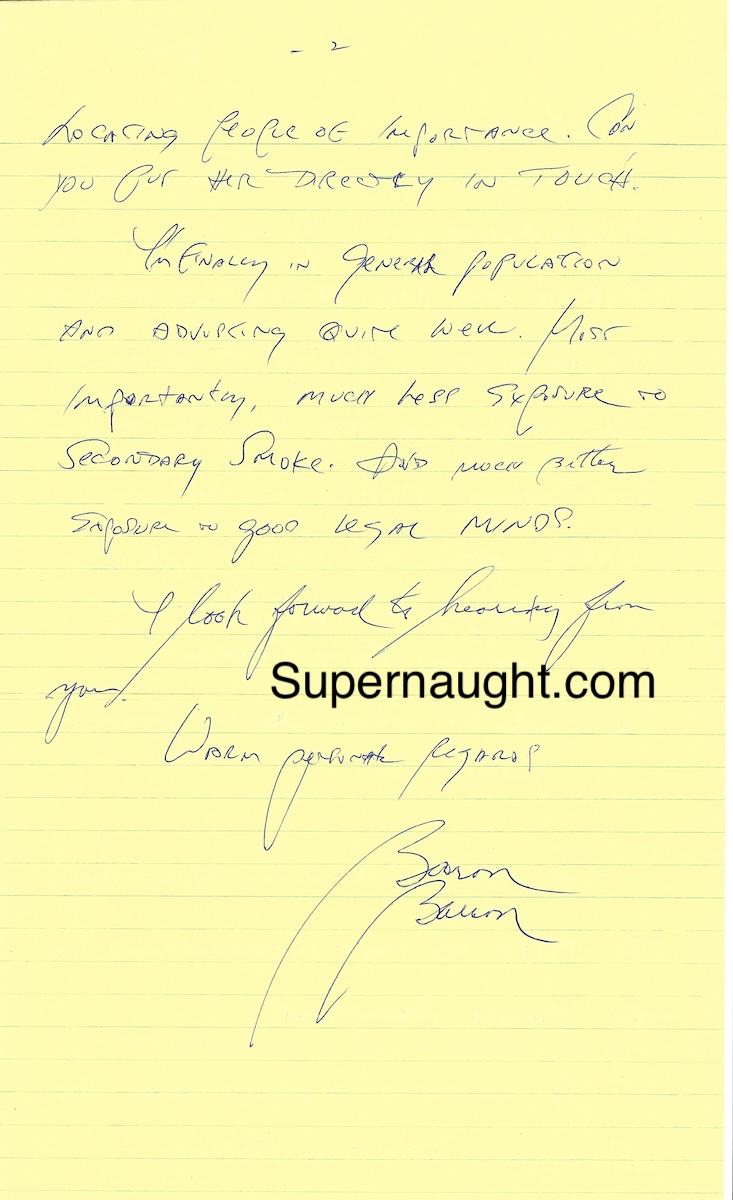 - 2
LOCATING PEOPLE OF IMPORTANCE. CAN
YOU PUT HER DIRECTLY IN TOUCH.
I'm FINALLY IN GENERAL POPULATION
AND ADJUSTING QUITE WELL. MOST
IMPORTANTLY, MUCH LESS EXPOSURE TO
SECONDARY SMOKE. AND MUCH BETTER
EXPOSURE TO GOOD LEGAL MINDS.
I look forward to hearing from
you.
Supernaught.com
WARM PERSONAL REGARDS
Baron
Baron